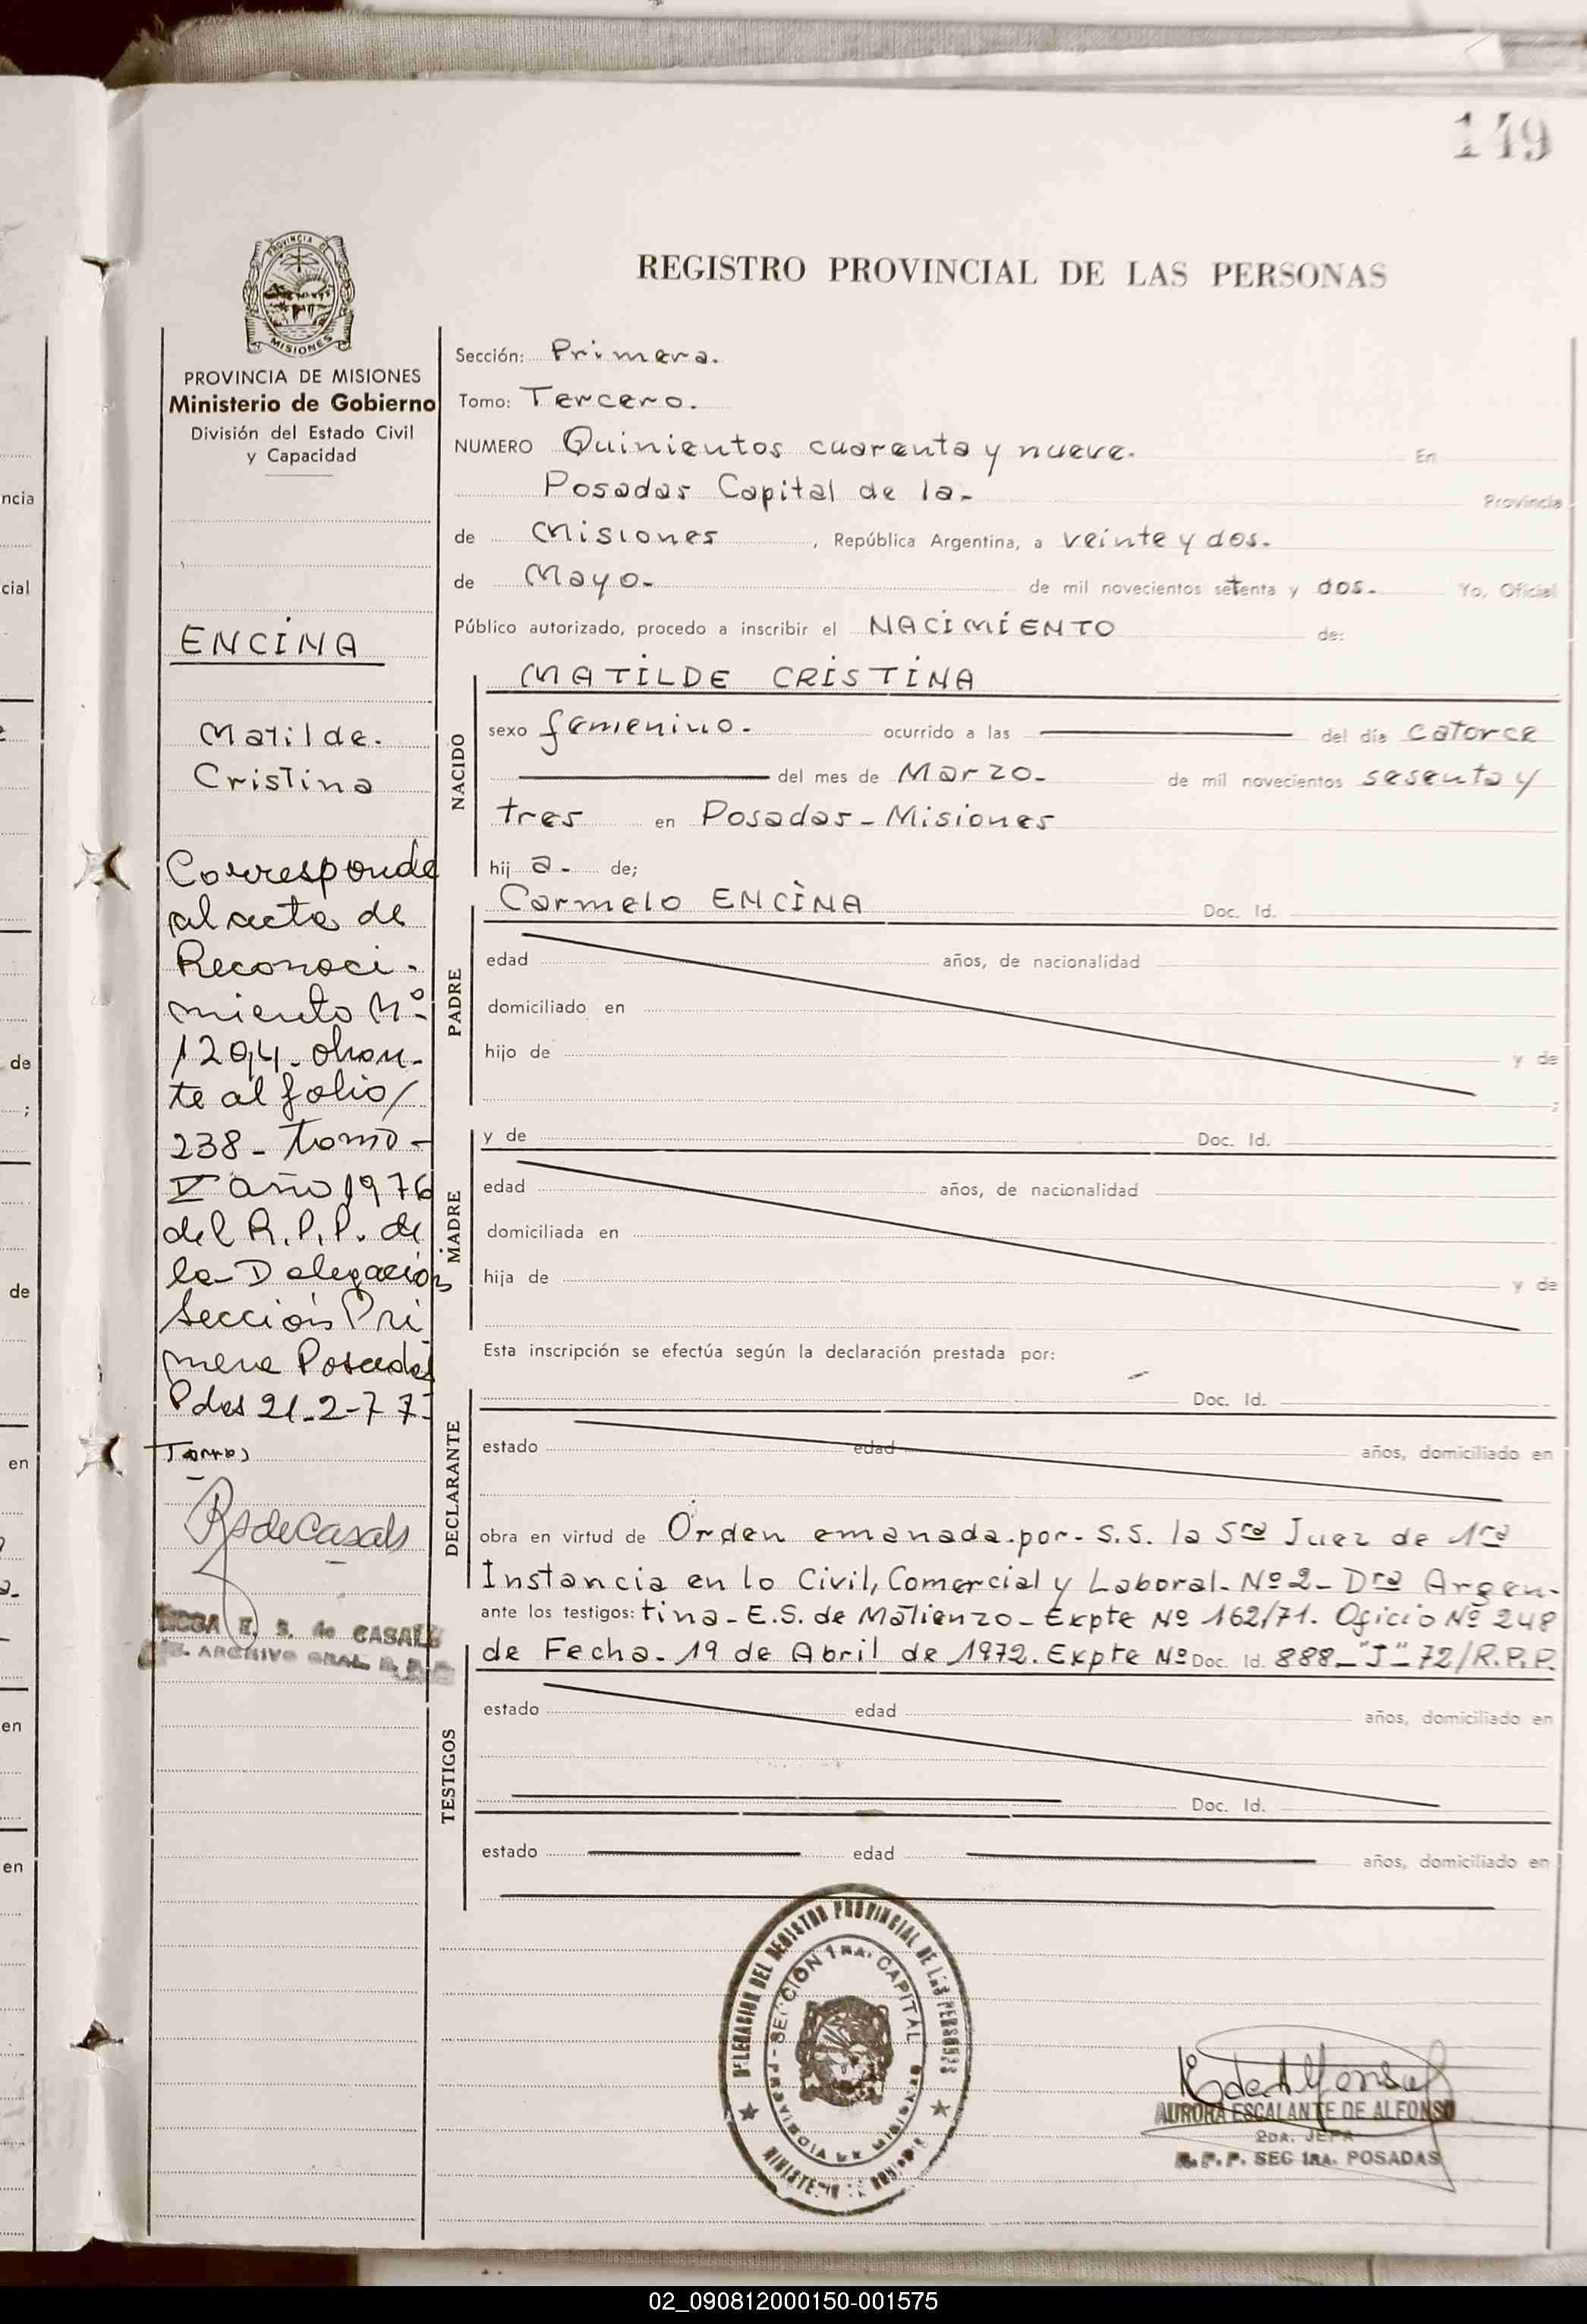 149
PROVINCIA DE
MISIONES
PROVINCIA DE MISIONES
Ministerio de Gobierno
División del Estado Civil
y Capacidad
ENCINA
Matilde.
Cristina
Corresponde
al acta de
Reconoci-
miento Nº
1294. obran-
te al folio/
238- tomo-
V año 1976
del R.P.P. de
la Delegación
Sección Pri
mera Posadas
Pdas 21-2-77-
Torres
RsdeCasals
E. S. de CASALS
ARCHIVO GRAL. R. P. P.
REGISTRO PROVINCIAL DE LAS PERSONAS
Sección: Primera.
Tomo: Tercero.
NUMERO Quinientos cuarenta y nueve. En
Posadas Capital de la- Provincia
de Misiones , República Argentina, a veinte y dos.
de Mayo- de mil novecientos setenta y dos. Yo, Oficial
Público autorizado, procedo a inscribir el NACIMIENTO de:
NACIDO
MATILDE CRISTINA
sexo femenino. ocurrido a las del día catorce
del mes de Marzo- de mil novecientos sesenta y
tres en Posadas - Misiones
hij a- de;
PADRE
Carmelo ENCINA Doc. Id.
edad años, de nacionalidad
domiciliado en
hijo de y de
;
MADRE
y de Doc. Id.
edad años, de nacionalidad
domiciliada en
hija de y de
Esta inscripción se efectúa según la declaración prestada por:
DECLARANTE
Doc. Id.
estado edad años, domiciliado en
obra en virtud de Orden emanada.por- S.S. la Sra Juez de 1ra
Instancia en lo Civil, Comercial y Laboral- Nº 2- Dra Argen-
ante los testigos: tina - E.S. de Matienzo - Expte Nº 162/71. Oficio Nº 248
de Fecha- 19 de Abril de 1972. Expte Nº Doc. Id. 888-"J"-72/R.P.P.
TESTIGOS
estado edad años, domiciliado en
Doc. Id.
estado edad años, domiciliado en
DELEGACION DEL REGISTRO PROVINCIAL DE LAS PERSONAS
SECCION 1RA. CAPITAL
PROVINCIA DE MISIONES
MINISTERIO DE GOBIERNO
EdeAlfonso
AURORA ESCALANTE DE ALFONSO
2DA. JEFA
R.P.P. SEC 1RA. POSADAS
ncia
cial
de
;
de
en
en
en
02_090812000150-001575